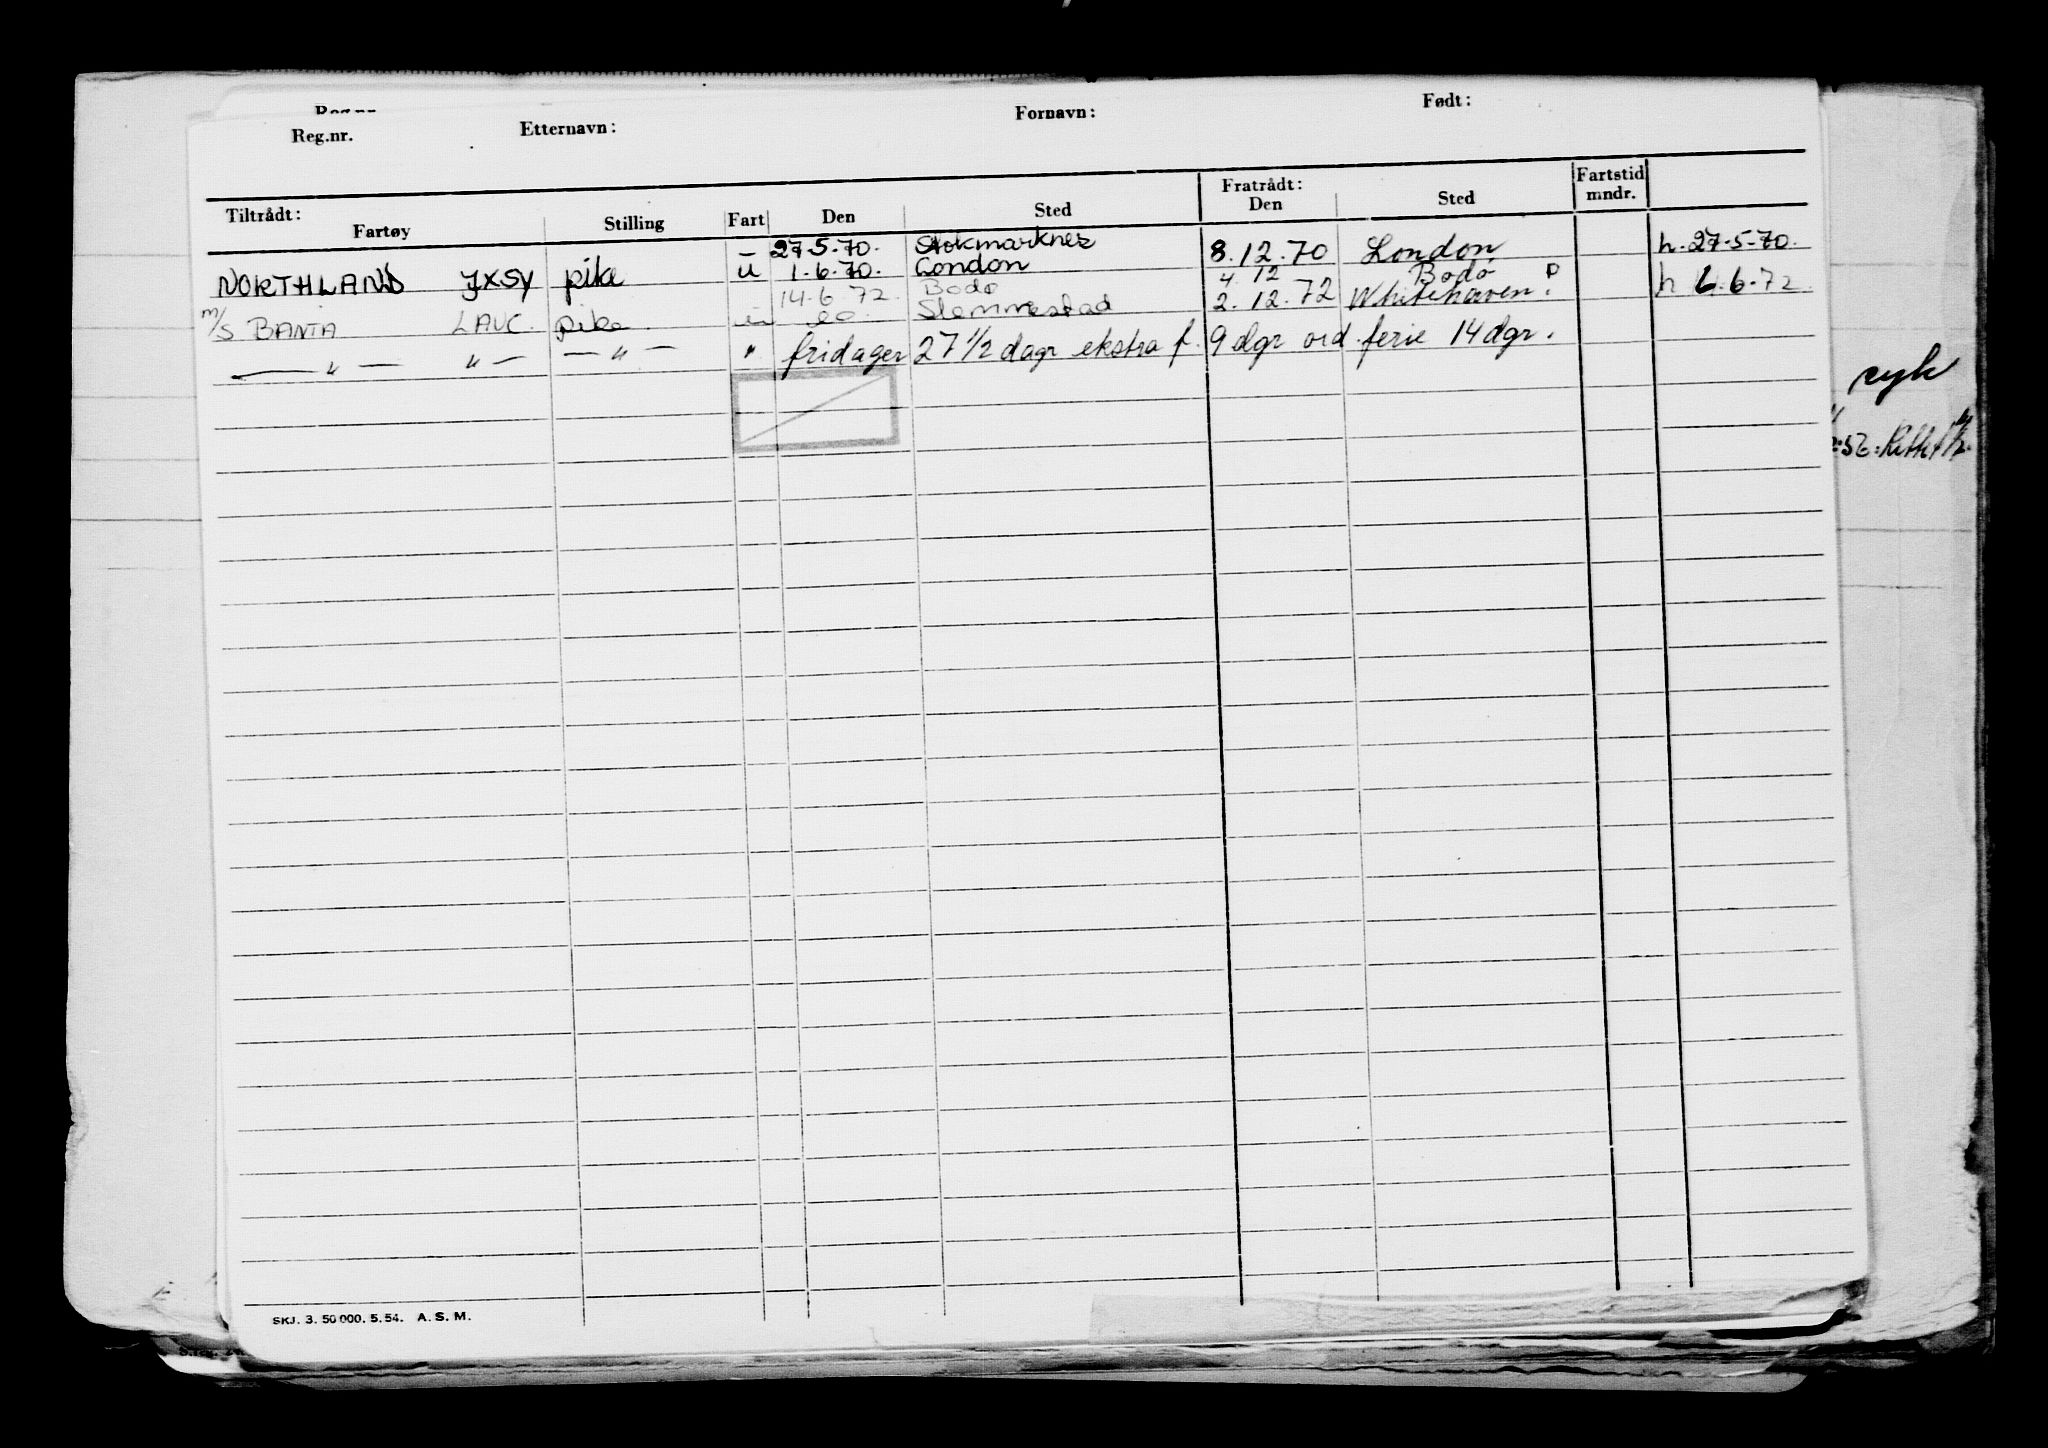 Reg.nr.
Reg.nr. Etternavn: Fornavn: Født:
Tiltrådt: Fratrådt: Fartstid
Fartøy Stilling Fart Den Sted Den Sted mndr.
- 27.5.70. Stokmarknes
NORTHLAND JXSY pike u 1.6.70. London 8.12.70 London h. 27.5.70.
14.6.72. Bodø 4.12 Bodø P
m/S BANTA LAUC. pike Slemmestad 2.12.72 Whitehaven. h 6.72.
— " — " — — " — " fridager 27 1/2 dagr ekstra f. 9 dgr ord. ferie 14 dgr.
syk
SKJ. 3. 50 000. 5. 54. A. S. M.